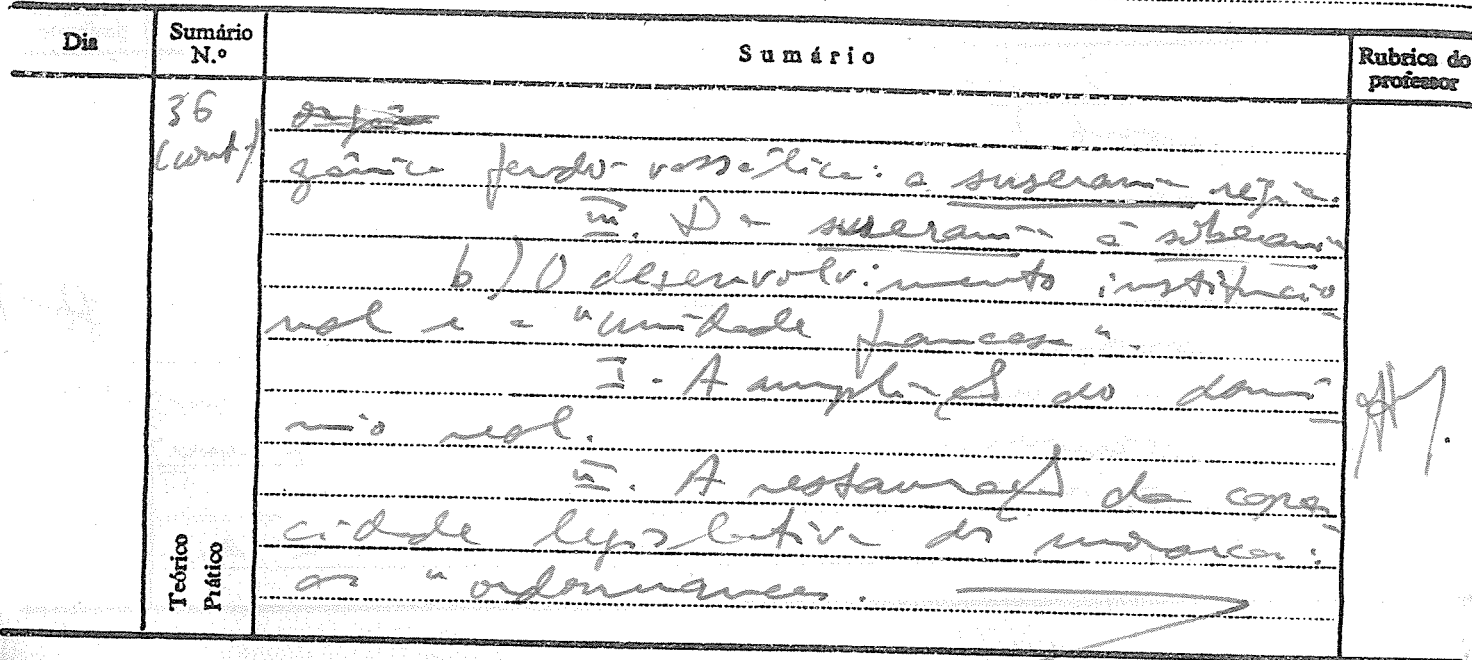 Dia
Sumário N.º
Sumário
Rubrica do professor
36
(cont.)
gânica feudo-vassálica: a suserania régia.
III. Da suserania à soberania
b) O desenvolvimento institucio
nal e a "unidade francesa".
I - A ampliação do domí
nio real.
II. A restauração da capa
cidade legislativa do monarca:
as "ordonnances.
Teórico
Prático